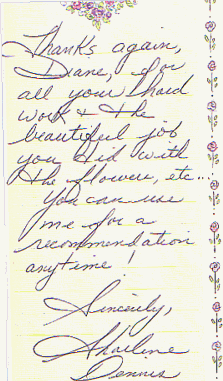 Thanks again,
Diane, for
all your hard
work & the
beautiful job
you did with
the flowers, etc...
You can use
me for a
recommendation
anytime!
Sincerely,
Sharlene
Dennis